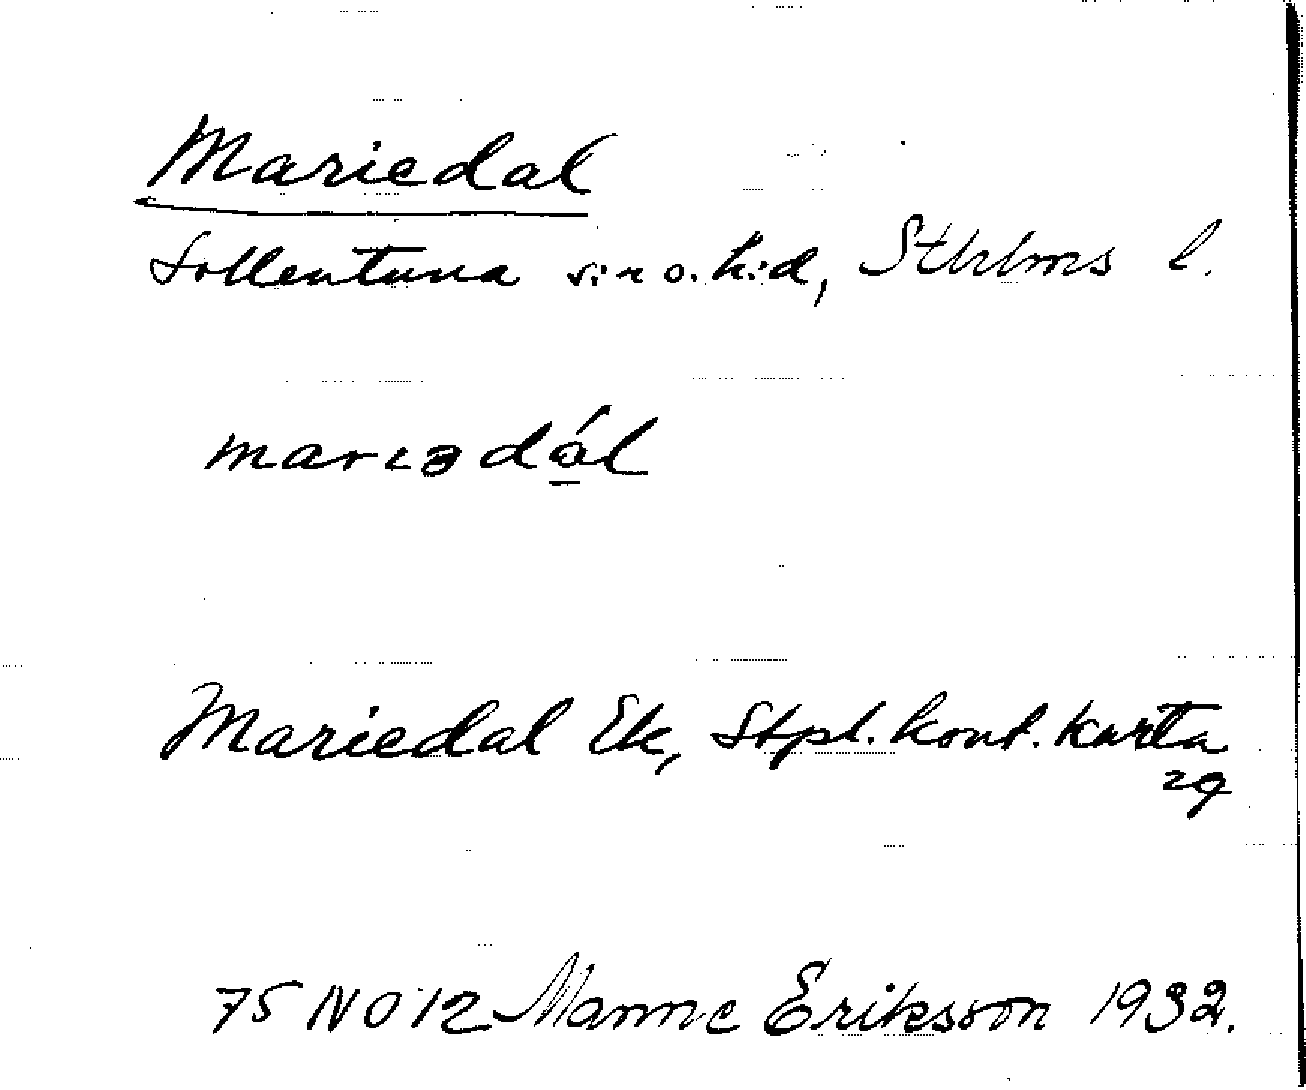 Mariedal
Sollentuna s:n o. h:d, Sthlms l.
marɩədá̱l
Mariedal Ek, Stpl. kont. karta
29
75 NO 12 Manne Eriksson 1932.